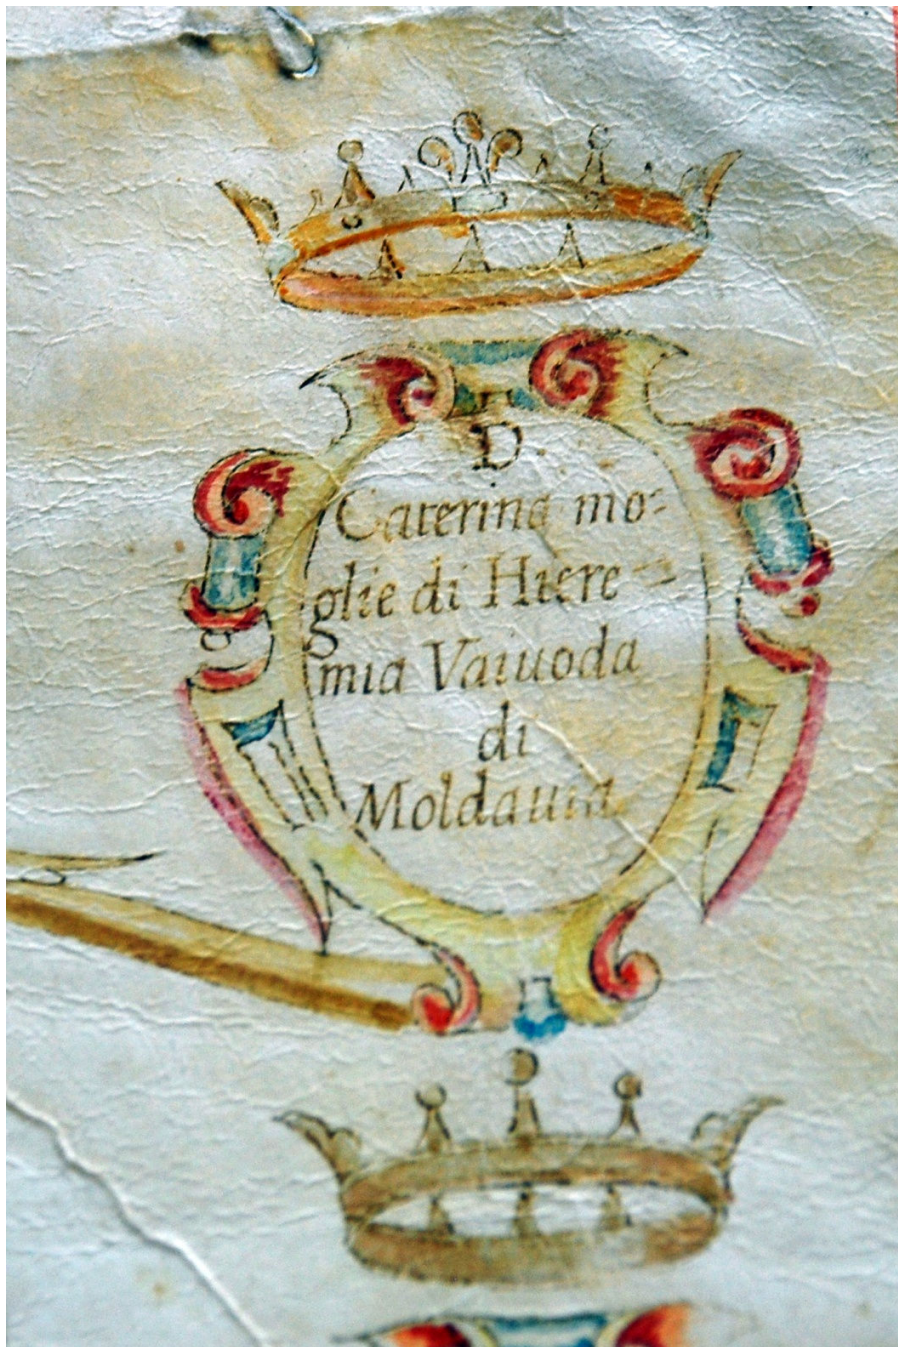 D.
Caterina mo-
glie di Hiere-
mia Vaiuoda
di
Moldauia